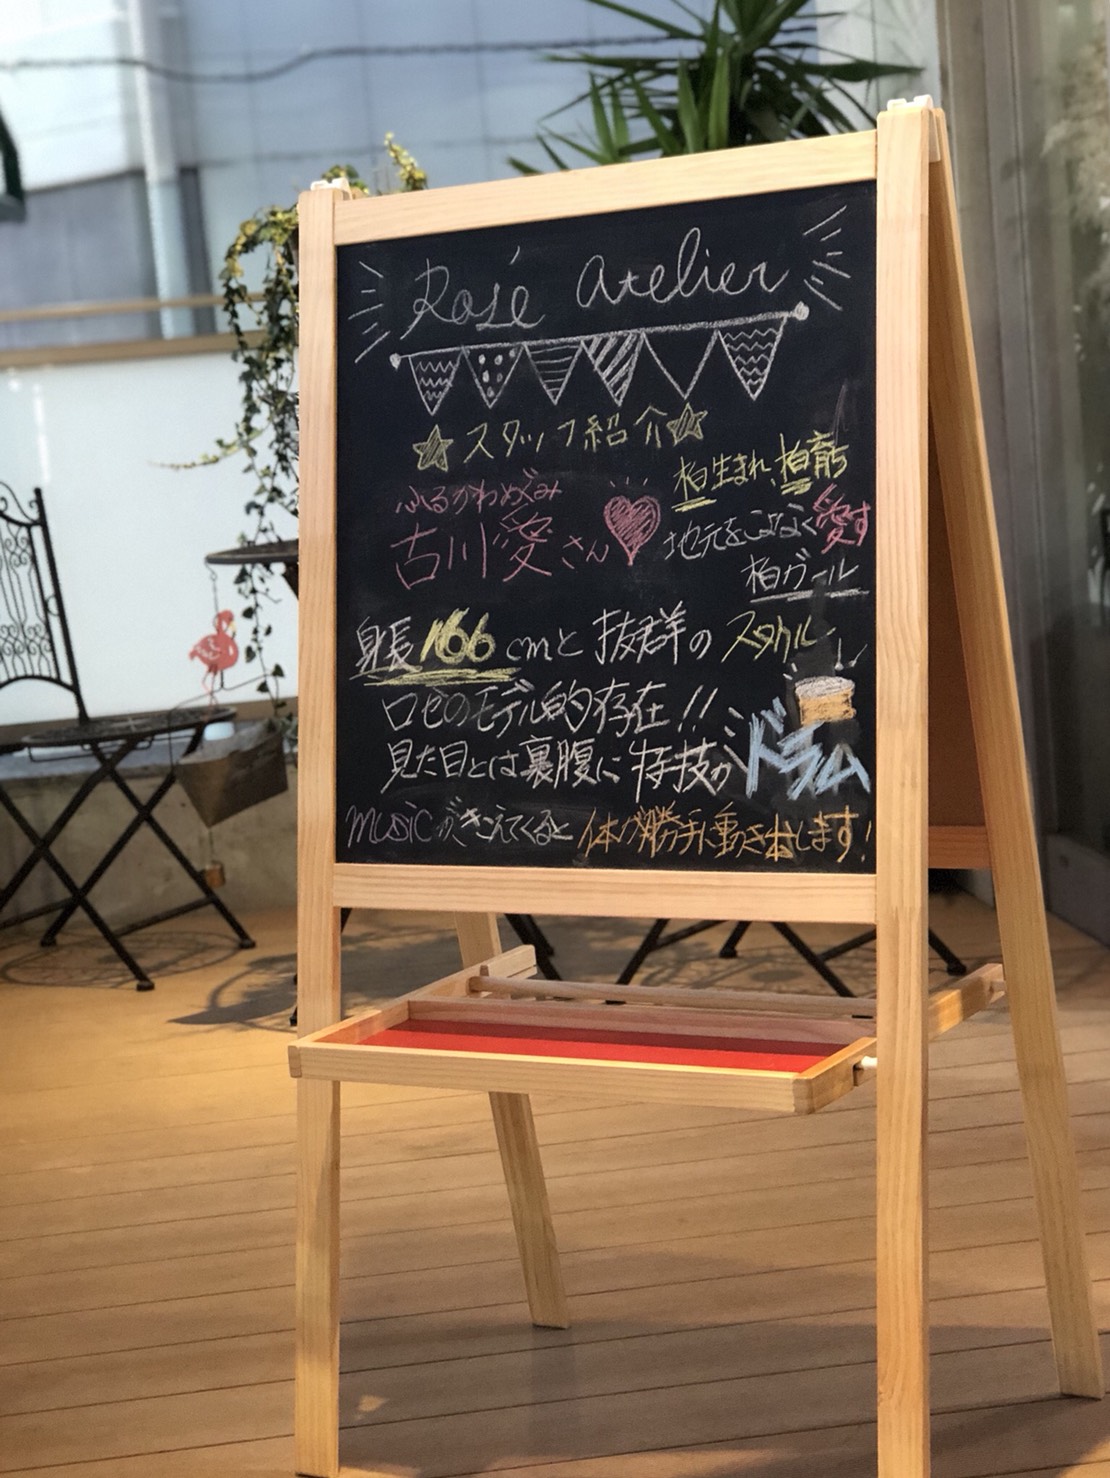 Rosé atelier
☆スタッフ紹介☆
ふるかわめぐみ
古川愛さん
柏生まれ、柏育ち
地元をこよなく愛す
柏ガール
身長166cmと抜群のスタイル
ロゼのモデル的存在!!
見た目とは裏腹に特技がドラム
musicがきこえてくると体が勝手に動き出します!